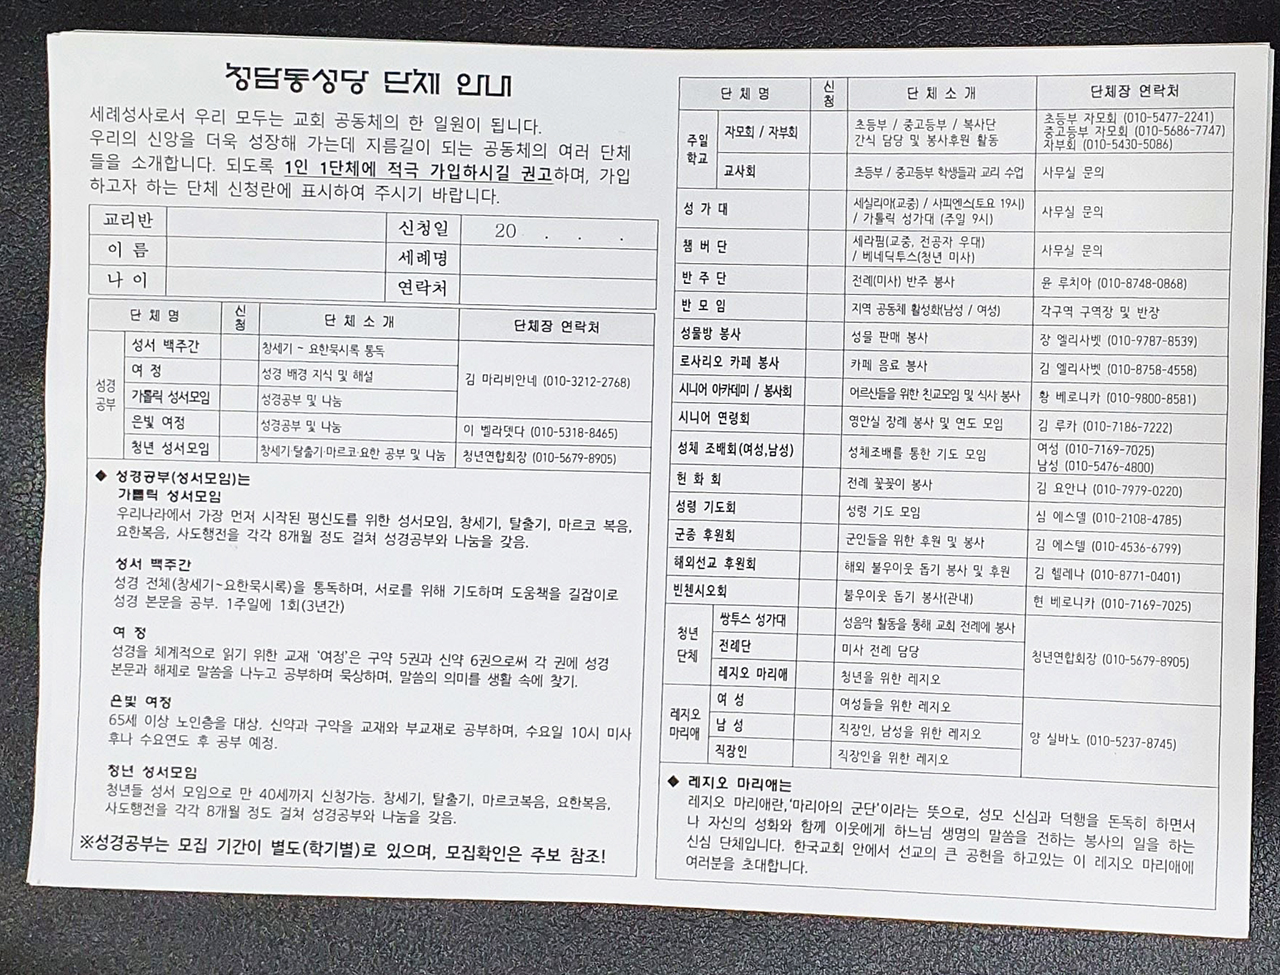 청담동성당 단체 안내
세례성사로서 우리 모두는 교회 공동체의 한 일원이 됩니다.
우리의 신앙을 더욱 성장해 가는데 지름길이 되는 공동체의 여러 단체
들을 소개합니다. 되도록 1인 1단체에 적극 가입하시길 권고하며, 가입
하고자 하는 단체 신청란에 표시하여 주시기 바랍니다.
교리반 신청일 20 . . .
이 름 세례명
나 이 연락처
단 체 명 신청 단 체 소 개 단체장 연락처
성경 공부
성서 백주간 창세기 ~ 요한묵시록 통독
여 정 성경 배경 지식 및 해설 김 마리비안네 (010-3212-2768)
가톨릭 성서모임 성경공부 및 나눔
은빛 여정 성경공부 및 나눔 이 벨라뎃다 (010-5318-8465)
청년 성서모임 창세기·탈출기·마르코·요한 공부 및 나눔 청년연합회장 (010-5679-8905)
◆ 성경공부(성서모임)는
가톨릭 성서모임
우리나라에서 가장 먼저 시작된 평신도를 위한 성서모임, 창세기, 탈출기, 마르코 복음,
요한복음, 사도행전을 각각 8개월 정도 걸쳐 성경공부와 나눔을 갖음.
성서 백주간
성경 전체(창세기~요한묵시록)을 통독하며, 서로를 위해 기도하며 도움책을 길잡이로
성경 본문을 공부. 1주일에 1회(3년간)
여 정
성경을 체계적으로 읽기 위한 교재 '여정'은 구약 5권과 신약 6권으로써 각 권에 성경
본문과 해제로 말씀을 나누고 공부하며 묵상하며, 말씀의 의미를 생활 속에 찾기.
은빛 여정
65세 이상 노인층을 대상. 신약과 구약을 교재와 부교재로 공부하며, 수요일 10시 미사
후나 수요연도 후 공부 예정.
청년 성서모임
청년들 성서 모임으로 만 40세까지 신청가능. 창세기, 탈출기, 마르코복음, 요한복음,
사도행전을 각각 8개월 정도 걸쳐 성경공부와 나눔을 갖음.
※성경공부는 모집 기간이 별도(학기별)로 있으며, 모집확인은 주보 참조!
단 체 명 신청 단 체 소 개 단체장 연락처
주일 학교
자모회 / 자부회
초등부 / 중고등부 / 복사단
간식 담당 및 봉사후원 활동
초등부 자모회 (010-5477-2241)
중고등부 자모회 (010-5686-7747)
자부회 (010-5430-5086)
교사회 초등부 / 중고등부 학생들과 교리 수업 사무실 문의
성 가 대
세실리아(교중) / 사피엔스(토요 19시)
/ 가톨릭 성가대 (주일 9시)
사무실 문의
챔 버 단
세라핌(교중, 전공자 우대)
/ 베네딕투스(청년 미사)
사무실 문의
반 주 단 전례(미사) 반주 봉사 윤 루치아 (010-8748-0868)
반 모 임 지역 공동체 활성화(남성 / 여성) 각구역 구역장 및 반장
성물방 봉사 성물 판매 봉사 장 엘리사벳 (010-9787-8539)
로사리오 카페 봉사 카페 음료 봉사 김 엘리사벳 (010-8758-4558)
시니어 아카데미 / 봉사회 어르산들을 위한 친교모임 및 식사 봉사 황 베로니카 (010-9800-8581)
시니어 연령회 영안실 장례 봉사 및 연도 모임 김 루카 (010-7186-7222)
성체 조배회(여성,남성) 성체조배를 통한 기도 모임
여성 (010-7169-7025)
남성 (010-5476-4800)
헌 화 회 전례 꽃꽂이 봉사 김 요안나 (010-7979-0220)
성령 기도회 성령 기도 모임 심 에스델 (010-2108-4785)
군종 후원회 군인들을 위한 후원 및 봉사 김 에스텔 (010-4536-6799)
해외선교 후원회 해외 불우이웃 돕기 봉사 및 후원 김 헬레나 (010-8771-0401)
빈첸시오회 불우이웃 돕기 봉사(관내) 현 베로니카 (010-7169-7025)
청년 단체
쌍투스 성가대 성음악 활동을 통해 교회 전례에 봉사
전례단 미사 전례 담당 청년연합회장 (010-5679-8905)
레지오 마리애 청년을 위한 레지오
레지오 마리애
여 성 여성들을 위한 레지오
남 성 직장인, 남성을 위한 레지오 양 실바노 (010-5237-8745)
직장인 직장인을 위한 레지오
◆ 레지오 마리애는
레지오 마리애란,'마리아의 군단'이라는 뜻으로, 성모 신심과 덕행을 돈독히 하면서
나 자신의 성화와 함께 이웃에게 하느님 생명의 말씀을 전하는 봉사의 일을 하는
신심 단체입니다. 한국교회 안에서 선교의 큰 공헌을 하고있는 이 레지오 마리애에
여러분을 초대합니다.